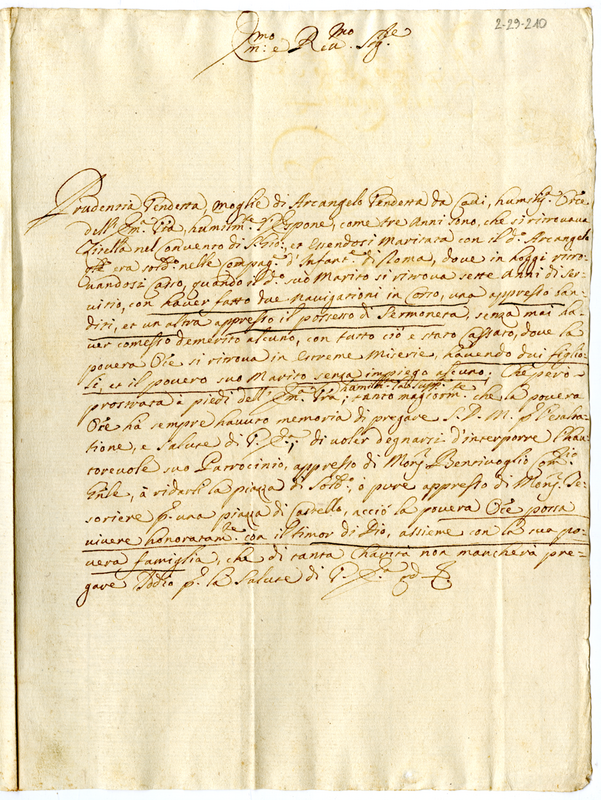 2-29-210
Em:mo e Rev.mo Sig.re
Prudenza Tendetta, moglie di Arcangelo Tendetta da humiliss.a Or.ce
dell'Em.za V.ra, humilm.te l'espone, come tre Anni sono, che si ritrovava
Zitella nel Convento di S. et essendosi Maritata con il d.o Arcangelo
era sold.o nelle Compag.e d'Infant.a di Roma, dove in hoggi ritro-
vandosi Casso, quando il d.o suo Marito si ritrova sette Anni di Ser-
vitio, con haver fatto due navigationi in Corso, una appresso ban-
diti, et un altra appresso il possesso di Sermoneta, senza mai ha-
ver comesso demerito alcuno, con tutto ciò è stato Cassato, dove la
povera Or.ce si ritrova in estreme Miserie, havendo dui figlio-
li, et il povero suo Marito senza impiego alcuno; Che però
prostrata à piedi dell'Em.za V.ra humilm.te la supp.ca
tanto magiorm.te che la povera
Or.ce ha sempre havuto memoria di pregare S. D. M. p. l'esalta-
tione, e salute di V. Em.za, di voler degnarsi d'interporre l'hau-
torevole suo Patrocinio, appresso di Mons.r Bentivoglio Com.rio
G'nle, à ridarli la piazza di sold.o, ò pure appresso di Mons.r Te-
soriere p. una piazza di Castello, acciò la povera Or.ce possa
vivere honoratam.te con il timor di Dio, assieme con la sua po-
vera famiglia, che di tanta Charità non mancherà pre-
gare Iddio p. la Salute di V. Em.za